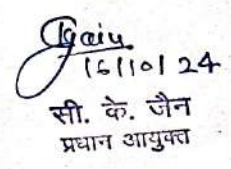 Jain
16/10/24
सी. के. जैन
प्रधान आयुक्त